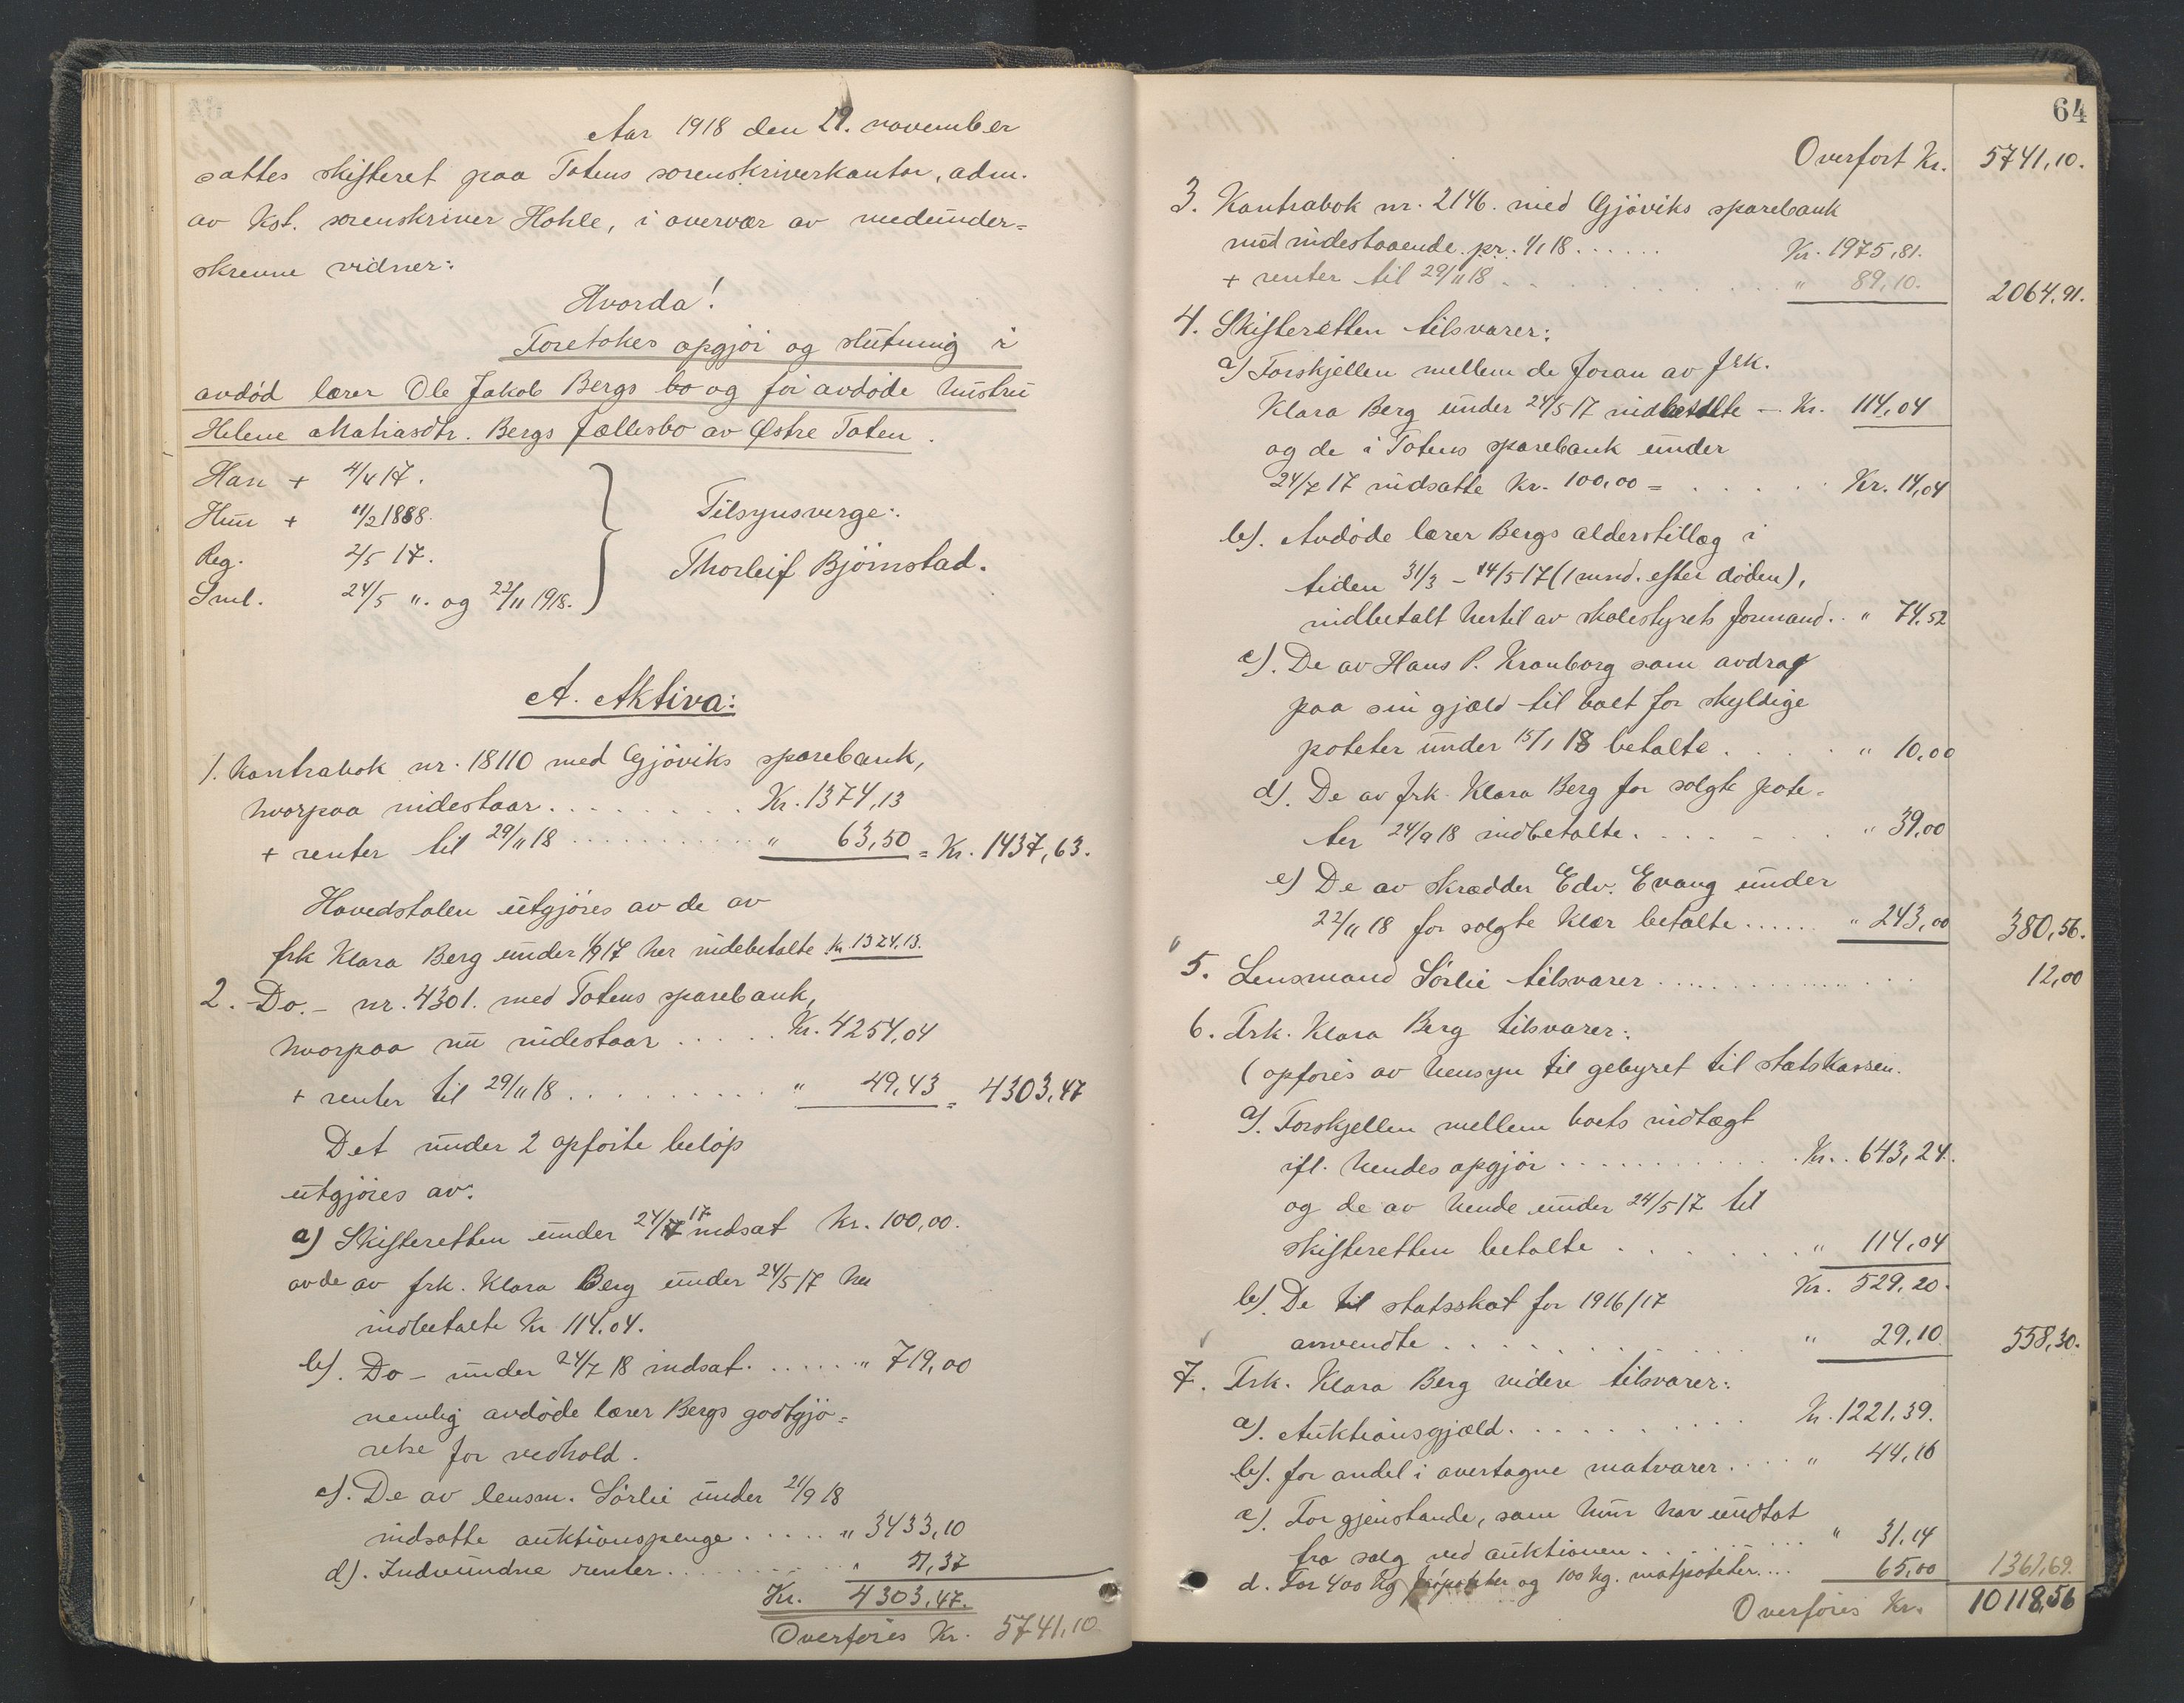 Aar 1918 den 29. november
sattes skifteret paa Totens sorenskriverkontor, adm.
av Kst. sorenskriver Hohle, i overvær av medunder=
skrevne vidner:
Hvorda!
Foretokes opgjør og slutning i
avdød lærer Ole Jakob Bergs bo og før avdøde hustru
Helene Mathiasdtr. Bergs fællesbo av Østre Toten.
Han + 4/4 17.
Hun + 11/2 1888.
Reg. 2/5 17.
Sml. 24/5 ". og 22/11 1918.
Tilsynsverge:
Thorleif Björnstad.
A. Aktiva:
1. Kontrabok nr. 18110 med Gjöviks sparebank,
hvorpaa indestaar . . . . . . Kr. 1374,13
+ renter til 29/11 18 . . . . . . " 63,50 = Kr. 1437,63.
Hovedstolen utgjöres av de av
frk Klara Berg under 1/9 17 her indebetalte Kr. 1374,13.
2. Do. - nr. 4301. med Totens sparebank,
hvorpaa nu indestaar . . . . . Kr. 4254,04
+ renter til 29/11 18 . . . . . . " 49,43 = 4303,47
Det under 2 opførte beløp
utgjöres av:
a) Skifteretten under 24/7 17 indsat Kr. 100,00.
av de av frk. Klara Berg under 24/5 17 her
indbetalte Kr 114.04.
b). Do - under 24/7 18 indsat . . . . . . " 719,00
nemlig avdöde lærer Bergs godtgjö=
relse for vedhold.
c). De av lensm. Sörlie under 21/9 18
indsatte auktionspenge . . . . . " 3433,10
d). Indvundne renter . . . . . . " 51,37
Kr. 4303,47.
Overföres Kr. 5741,10
64
Overfört Kr. 5741,10.
3. Kontrabok nr. 2146. med Gjöviks sparebank
med indestaaende pr. 1/1 18 . . . . . . Kr. 1975,81.
+ renter til 29/11 18 . . . . . . " 89,10. 2064,91.
4. Skifteretten tilsvarer:
a) Forskjellen mellem de foran av frk.
Klara Berg under 24/5 17 indbetalte - Kr. 114,04
og de i Totens sparebank under
24/7 17 indsatte Kr. 100,00 = . . . . . Kr. 14,04
b). Avdöde lærer Bergs alderstillæg i
tiden 31/3 - 14/5 17 (1 mnd. efter döden),
indbetalt hertil av skolestyrets formand. . " 74,52
c). De av Hans P. Kronborg som avdrag
paa sin gjæld til boet for skyldige
poteter under 15/1 18 betalte . . . . . " 10,00
d). De av frk. Klara Berg for solgte pote-
ter 24/9 18 indbetalte . . . . . . " 39,00
e) De av skrædder Edv. Evang under
22/11 18 for solgte klær betalte . . . . . . " 243,00 380,56.
5. Lensmand Sörlie tilsvarer . . . . . . 12,00
6. Frk. Klara Berg tilsvarer:
( opföres av hensyn til gebyret til statskassen.
a). Forskjellen mellem boets indtægt
ifl. hendes opgjör . . . . . . Kr. 643,24.
og de av hende under 24/5 17 til
skifteretten betalte . . . . . . " 114,04
Kr. 529,20.
b). De til statsskat for 1916/17
anvendte . . . . . . " 29,10 558,30.
7. Frk. Klara Berg videre tilsvarer:
a). Auktionsgjæld . . . . . . Kr. 1221,39.
b). for andel i overtagne matvarer . . . . " 44,16
c). For gjenstande, som hun har undtat
fra salg ved auktionen . . . . . . " 31,14
d. For 400 kg og 100 kg. matpoteter . . . . 65,00 1361,69.
Overföres Kr. 10118,56